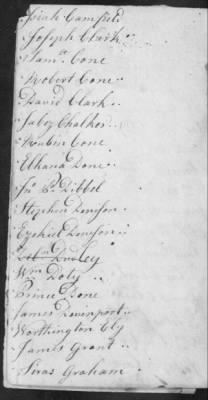 Isiah Camfield
Joseph Clark
Sam.ll Cone
Robert Cone
David Clark
Jabez Chalker
Reubin Cone
Elkana Done
Jn.o P. Dibbel
Stephen Denison
Ezekiel Denison
Dudley
Wm Doty
Prince Done
James Devinport
Worthington Ely
James Grant
Siras Graham